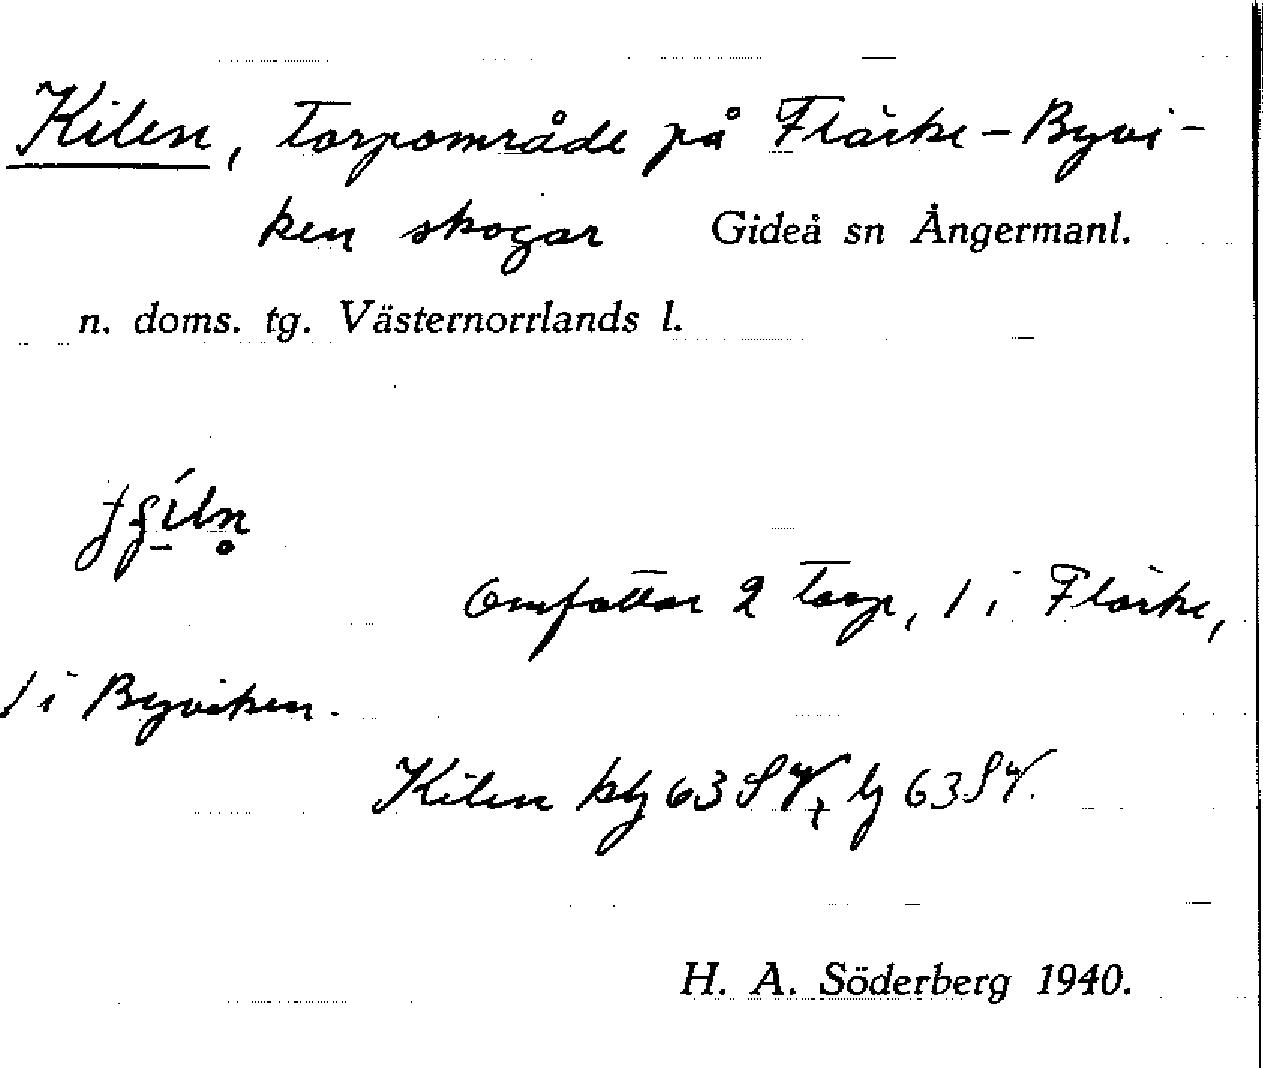 Kilen, torpområde på Flärke-Byvi-
ken skogar Gideå sn Ångermanl.
n. doms. tg. Västernorrlands l.
Omfattar 2 torp, 1 i Flärke,
1 i Byviken.
Kilen 63 63
H. A. Söderberg 1940.